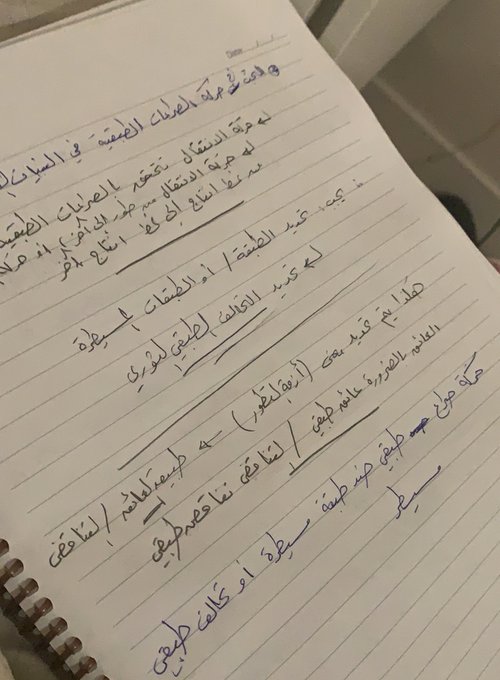 Date / /
البحث في حركة الصراعات الطبقية في البنيات
↳ حركة الانتقال تتحقق بالصراعات الطبقية
↳ حركة الانتقال من طور إلى آخر / أو حركة
من نمط انتاج إلى نمط انتاج آخر
. يجب تحديد الطبقة / أو الطبقات المسيطرة
↳ تحديد التحالف الطبقي الثوري
هكذا يتم تحديد معنى (أزمة التطور) ← طبيعة العائق / التناقض
العائق بالضرورة عائق طبقي / التناقض تناقض طبقي
حركة صراع طبقي ضد طبقة مسيطرة أو تحالف طبقي
مسيطر